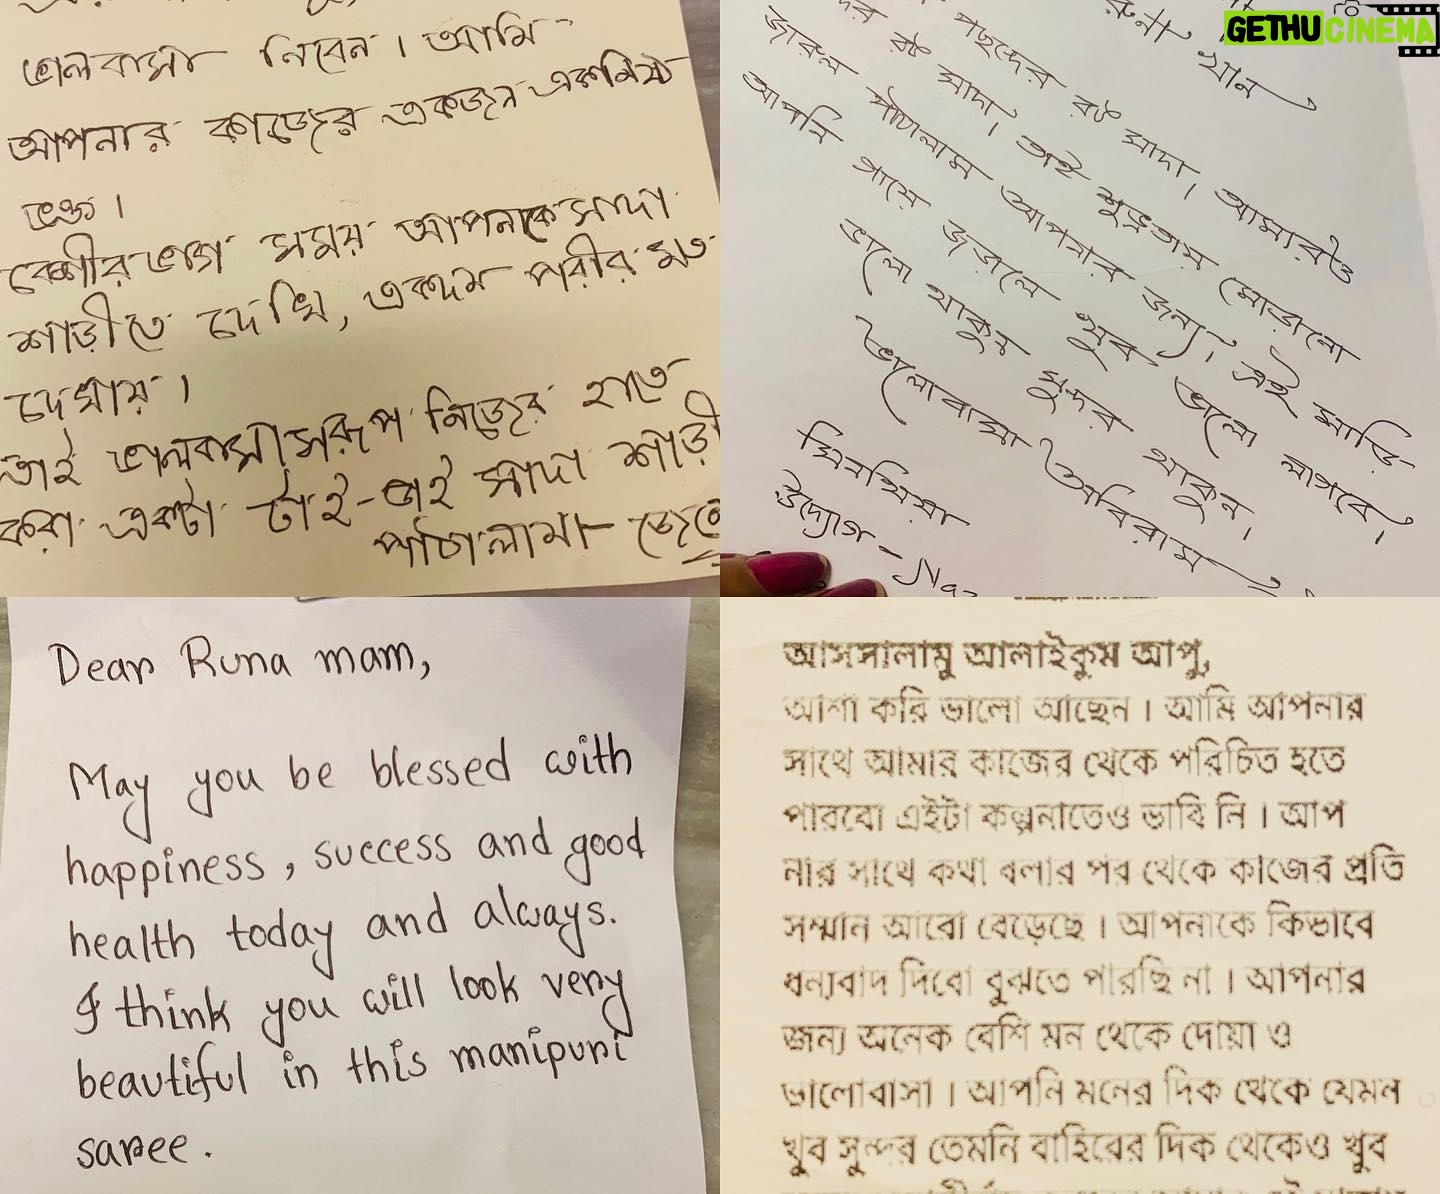 ভালবাসা নিবেন। আমি
আপনার কাজের একজন একনিষ্ঠ
ভক্ত।
বেশীরভাগ সময় আপনাকে সাদা
শাড়ীতে দেখি, একদম পরীর মত
দেখায়।
তাই ভালবাসাসরূপ নিজের হাতে
করা একটা টাই-ডাই সাদা শাড়ী
পাঠালাম।
রুনা খান
পছন্দের রঙ সাদা। আমারও
রঙ সাদা। তাই শুভ্রতায় মোড়ানো
পাঠালাম আপনার জন্য। এই শাড়ি
আপনি গায়ে জড়ালে খুব ভালো লাগবে।
ভালো থাকুন সুন্দর থাকুন।
ভালোবাসা অবিরাম
GETHUCINEMA
Dear Runa mam,
May you be blessed with
happiness, success and good
health today and always.
I think you will look very
beautiful in this manipuri
saree.
আসসালামু আলাইকুম আপু,
আশা করি ভালো আছেন। আমি আপনার
সাথে আমার কাজের থেকে পরিচিত হতে
পারবো এইটা কল্পনাতেও ভাবি নি। আপ
নার সাথে কথা বলার পর থেকে কাজের প্রতি
সম্মান আরো বেড়েছে। আপনাকে কিভাবে
ধন্যবাদ দিবো বুঝতে পারছি না। আপনার
জন্য অনেক বেশি মন থেকে দোয়া ও
ভালোবাসা। আপনি মনের দিক থেকে যেমন
খুব সুন্দর তেমনি বাহিরের দিক থেকেও খুব